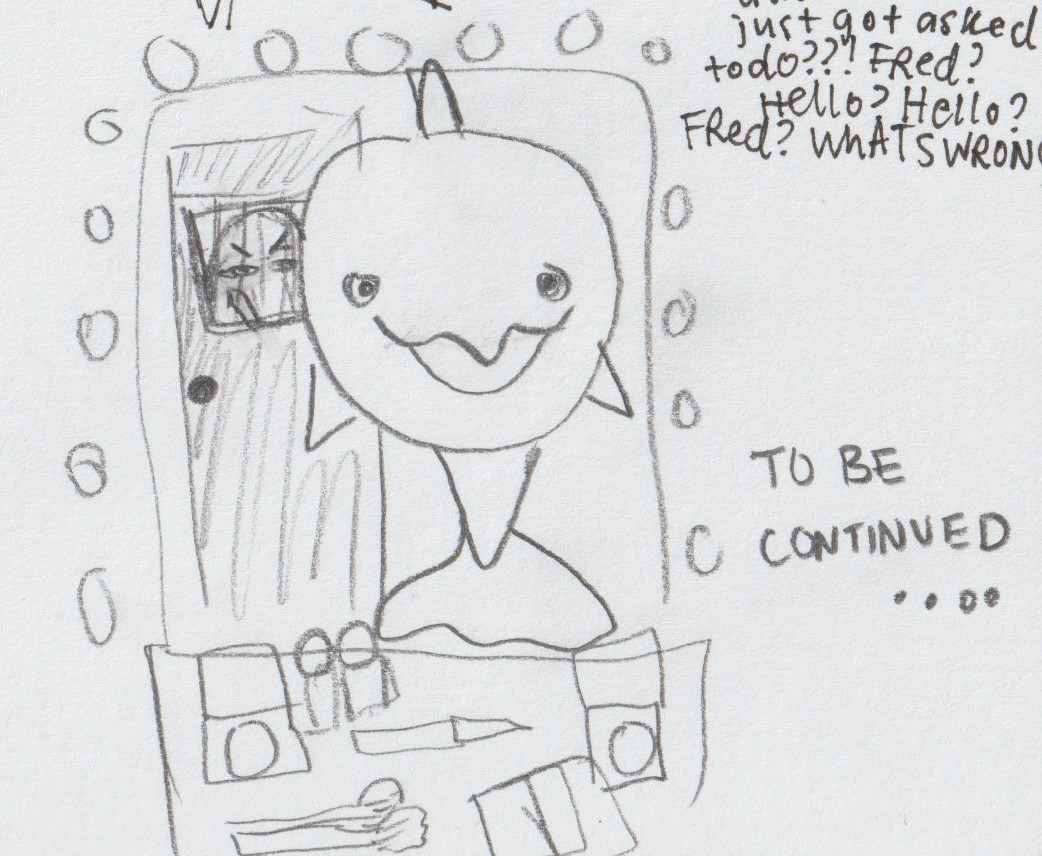 just got asked
todo???! FRed?
Hello? Hello?
FRed? WhATS WRONG
TO BE
CONTINUED
....